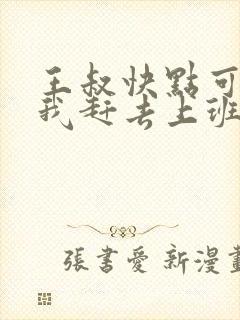 王叔快點可
我赶去上班
張書愛 新漫畫